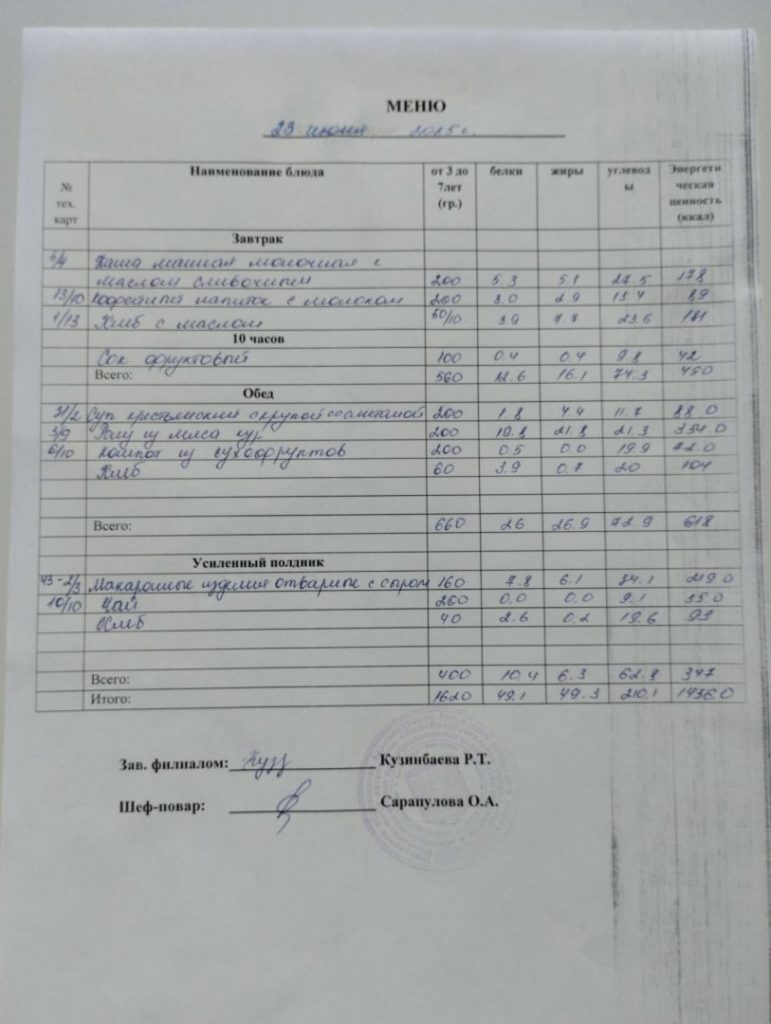 МЕНЮ
23 июня 2025 г.
№ тех. карт Наименование блюда от 3 до 7лет (гр.) белки жиры углеводы Энергетическая ценность (ккал)
Завтрак
Каша манная молочная с
маслом сливочным 200 5.3 5.1 27.5 178
13/10 Кофейный напиток с молоком 200 3.0 2.9 13.4 89
1/13 Хлеб с маслом 50/10 3.9 7.7 23.6 181
10 часов
Сок фруктовый 100 0.4 0.4 9.8 42
Всего: 560 12.6 16.1 74.3 490
Обед
31/2 Суп крестьянский с крупой со сметаной 200 1.8 4.4 11.7 88.0
3/9 Рагу из мяса кур 200 19.8 21.8 21.3 354.0
6/10 Компот из сухофруктов 200 0.5 0.0 19.9 72.0
Хлеб 60 3.9 0.7 20 104
Всего: 660 26 26.9 72.9 618
Усиленный полдник
43-2/3 Макаронные изделия отварные с сыром 160 7.8 6.1 34.1 219.0
10/10 Чай 200 0.0 0.0 9.1 35.0
Хлеб 40 2.6 0.2 19.6 93
Всего: 400 10.4 6.3 62.8 347
Итого: 1620 49.1 49.3 210.1 1456.0
Зав. филиалом: Кузинбаева Р.Т.
Шеф-повар: Сарапулова О.А.